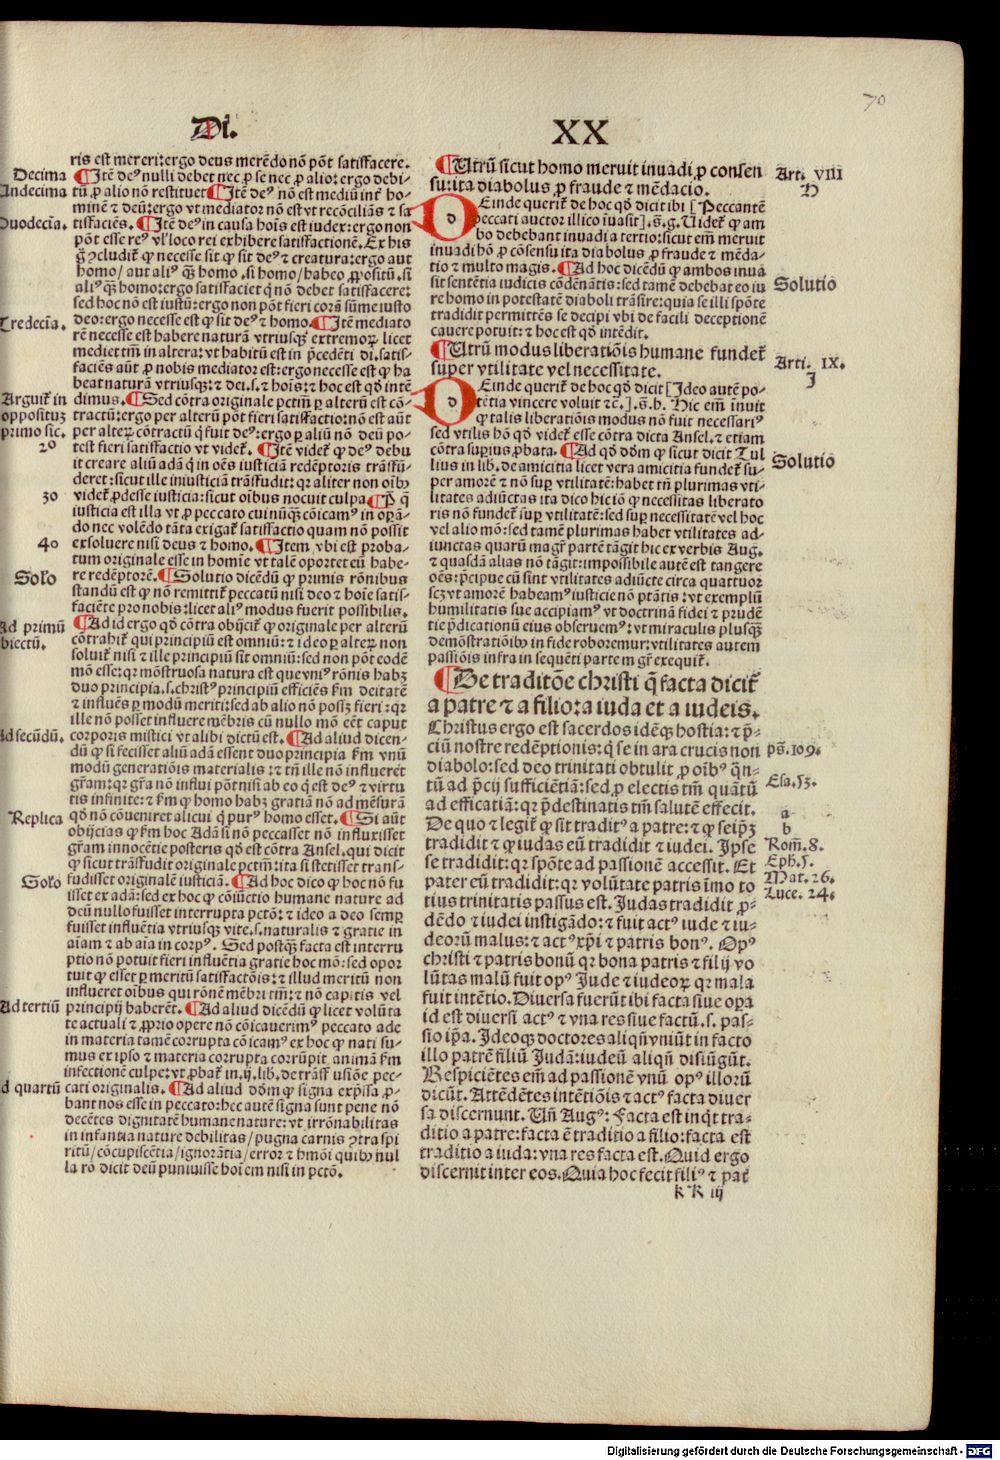 70
Di. XX
ris est mereri: ergo deus merēdo nō pōt satisfacere.
Decima
¶ Itē deꝰ nulli debet nec ꝓ se nec ꝓ alio: ergo debi-
Undecima
tū ꝓ alio nō restituet ¶ Itē deꝰ nō est mediū int̄ ho-
minē ⁊ deū: ergo vt mediator nō est vt recōciliās ⁊ sa
Duodecīa.
tisfaciēs. ¶ Itē deꝰ in causa hoīs est iudex: ergo non
pōt esse reꝰ vl̓ loco rei exhibere satisfactionē. Ex his
ꝯcludit̄ ꝙ necesse sit ꝙ sit deꝰ ⁊ creatura: ergo aut
homo/ aut aliꝰ qȝ̄ homo. si homo/ habeo ꝓpositū. si
aliꝰ qȝ̄ homo: ergo satisfaciet q̄ nō debet satisfacere:
sed hoc nō est iustū: ergo non pōt fieri corā sūme iusto
Tredecīa.
deo: ergo necesse est ꝙ sit deꝰ ⁊ homo. ¶ Itē mediato
rē necesse est habere naturā vtriusqȝ extremoꝝ licet
mediet tm̄ in altera: vt habitū est in p̄cedēti di. satis-
faciēs aūt ꝓ nobis mediator est: ergo necesse est ꝙ ha
beat naturā vtriusqȝ: ⁊ dei. s. ⁊ hoīs: ⁊ hoc est qd̄ intē
Arguit̄ in
dimus. ¶ Sed cōtra originale pctm̄ ꝑ alterū est cō-
oppositūȝ
tractū: ergo per alterū pōt fieri satisfactio: nō est aūt
primo sic.
per alteꝝ cōtractū q̄ fuit deꝰ: ergo ꝑ aliū nō deū po-
2°
test fieri satisfactio vt videt̄. ¶ Itē videt̄ ꝙ deꝰ debu
it creare aliū adā q̄ in oēs iusticiā redēptoris trāsfū-
deret: sicut ille iniusticiā trāsfudit: qr aliter non oībꝰ
3o
videt̄ ꝓdesse iusticia: sicut oībus nocuit culpa ¶ P̄ q̄
iusticia est illa vt ꝓ peccato cui nūqȝ̄ cōicamꝰ in oꝑā-
do nec volēdo tāta exigat̄ satisfactio quam nō possit
4o
exsoluere nisi deus ⁊ homo. ¶ Item vbi est proba-
tum originale esse in homīe vt talē oportet eū habe-
Solo
re redēptorē. ¶ Solutio dicēdū ꝙ primis rōnibus
standū est ꝙ nō remittit̄ peccatū nisi deo ⁊ hoīe satis-
faciēte pro nobis: licet aliꝰ modus fuerit possibilis.
Ad primū
¶ Ad id ergo qd̄ cōtra obijcit̄ ꝙ originale per alterū
obiectū.
cōtrahit̄ qui principiū est omniū: ⁊ ideo ꝑ alteꝝ non
soluit̄ nisi ⁊ ille principiū sit omniū: sed non pōt eodē
mō esse: qr mōstruosa natura est que vniꝰ rōnis habȝ
duo principia. s. christꝰ principiū efficiēs fm̄ deitatē
⁊ influēs ꝑ modū meriti: sed ab alio nō possȝ fieri: qr
ille nō posset influere mēbris cū nullo mō eēt caput
Ad secūdū.
corporis mistici vt alibi dictū est. ¶ Ad aliud dicen-
dū ꝙ si fecisset aliū adā essent duo principia fm̄ vnū
modū generatiōis materialis: ⁊ tn̄ ille nō influeret
gr̄am: qr gr̄a nō influi pōt nisi ab eo q̄ est deꝰ ⁊ virtu
tis infinite: ⁊ fm̄ ꝙ homo habȝ gratiā nō ad mēsurā
Replica
qd̄ nō cōueniret alicui q̄ purꝰ homo esset. ¶ Si aūt
obijcias ꝙ fm̄ hoc Adā si nō peccasset nō influxisset
gr̄am innocētie posteris qd̄ est cōtra Ansel. qui dicit
ꝙ sicut trāsfudit originale pctm̄: ita si stetisset trans-
Solo
fudisset originalē iusticiā. ¶ Ad hoc dico ꝙ hoc nō fu
isset ex adā: sed ex hoc ꝙ cōiūctio humane nature ad
deū nullo fuisset interrupta pctō: ⁊ ideo a deo semꝑ
fuisset influētia vtriusqȝ vite. s. naturalis ⁊ gratie in
aīam ⁊ ab aīa in corpꝰ. Sed postqȝ̄ facta est interru
ptio nō potuit fieri influētia gratie hoc mō: sed opor
tuit ꝙ esset ꝑ meritū satisfactōis: ⁊ illud meritū non
influeret oībus qui rōnē mēbri tm̄: ⁊ nō capitis vel
Ad tertiū
principij haberēt. ¶ Ad aliud dicēdū ꝙ licet volūta
te actuali ⁊ ꝓprio opere nō cōicauerimꝰ peccato ade
in materia tamē corrupta cōicamꝰ ex hoc ꝙ nati su-
mus ex ipso ⁊ materia corrupta corrūpit animā fm̄
infectionē culpe: vt ꝓbat̄ in. ij. lib. de trāsfusiōe pec-
Ad quartū
cati originalis. ¶ Ad aliud dōm ꝙ signa exp̄ssa ꝓ-
bant nos esse in peccato: hec autē signa sunt pene nō
decētes dignitatē humane nature: vt irrōnabilitas
in infantia nature debilitas/ pugna carnis ꝯtra spi
ritū/ cōcupiscētia/ ignorātia/ error ⁊ hmōi quibꝰ nul
la rō dicit deū puniuisse hoīem nisi in pctō.
¶ Utrū sicut homo meruit inuadi ꝓ consen
Arti. VIII
su: ita diabolus ꝓ fraude ⁊ mēdacio.
H
DEinde querit̄ de hoc qd̄ dicit ibi [Peccantē
peccati auctor illico inuasit]. s. g. Uidet̄ ꝙ am
bo debebant inuadi a tertio: sicut em̄ meruit
inuadi hō ꝓ cōsensu ita diabolus ꝓ fraude ⁊ mēda-
tio ⁊ multo magis. ¶ Ad hoc dicēdū ꝙ ambos inua
Solutio
sit sentētia iudicis cōdēnātis: sed tamē debebat eo iu
re homo in potestatē diaboli trāsire: quia se illi spōte
tradidit permittēs se decipi vbi de facili deceptionē
cauere potuit: ⁊ hoc est qd̄ intēdit.
¶ Utrū modus liberatiōis humane fundet̄
Arti. IX.
super vtilitate vel necessitate.
I
DEinde querit̄ de hoc qd̄ dicit [Ideo autē po-
tētia vincere voluit ⁊c̄.]. s. h. Hic em̄ inuit
ꝙ talis liberatiōis modus nō fuit necessariꝰ
sed vtilis hō qd̄ videt̄ esse cōtra dicta Ansel. ⁊ etiam
cōtra suꝑius ꝓbata. ¶ Ad qd̄ dōm ꝙ sicut dicit Tul
Solutio
lius in lib. de amicitia licet vera amicitia fundet̄ su-
per amorē ⁊ nō suꝑ vtilitatē: habet tn̄ plurimas vti-
litates adiūctas ita dico hic iō ꝙ necessitas liberato
ris nō fundet̄ suꝑ vtilitatē: sed suꝑ necessitatē vel hoc
vel alio mō: sed tamē plurimas habet vtilitates ad-
iunctas quarū magr̄ partē tāgit hic ex verbis Aug.
⁊ quasdā alias nō tāgit: impossibile autē est tangere
oēs: p̄cipue cū sint vtilitates adiūcte circa quattuor
scȝ vt amorē habeamꝰ iusticie nō ptātis: vt exemplū
humilitatis sue accipiamꝰ vt doctrinā fidei ⁊ prudē
tie p̄dicationū eius obseruemꝰ: vt miraculis plusqȝ̄
demōstratiōibꝰ in fide roboremur: vtilitates autem
passiōis infra in sequēti parte mgr̄ exequit̄.
¶ De traditōe christi q̄ facta dicit̄
a patre ⁊ a filio: a iuda et a iudeis.
Christus ergo est sacerdos idēqȝ hostia: ⁊ p̄-
ciū nostre redēptionis: q̄ se in ara crucis non
ps̄. 109.
diabolo: sed deo trinitati obtulit ꝓ oībꝰ q̄n-
Esa. 53.
tū ad p̄cij sufficiētiā: sed ꝓ electis tm̄ quātū
ad efficatiā: qr p̄destinatis tm̄ salutē effecit.
a
De quo ⁊ legit̄ ꝙ sit traditꝰ a patre: ⁊ ꝙ seip̄ȝ
b
tradidit ⁊ ꝙ iudas eū tradidit ⁊ iudei. Ipse
Rom̄. 8.
se tradidit: qr spōte ad passionē accessit. Et
Eph. 5.
pater eū tradidit: qr volūtate patris īmo to
Mat. 26.
tius trinitatis passus est. Judas tradidit ꝓ-
Luce. 24.
dēdo ⁊ iudei instigādo: ⁊ fuit actꝰ iude ⁊ iu-
deorū malus: ⁊ actꝰ xp̄i ⁊ patris bonꝰ. Opꝰ
christi ⁊ patris bonū qr bona patris ⁊ filij vo
lūtas malū fuit opꝰ Jude ⁊ iudeoꝝ qr mala
fuit intētio. Diuersa fuerūt ibi facta siue oꝑa
id est diuersi actꝰ ⁊ vna res siue factū. s. pas-
sio ip̄a. Ideoqȝ doctores aliqn̄ vniūt in facto
illo patrē filiū Judā: iudeū aliqn̄ disiūgūt.
Respiciētes em̄ ad passionē vnū opꝰ illorū
dicūt. Attēdētes intētiōis ⁊ actꝰ facta diuer
sa discernunt. Un̄ Augꝰ: Facta est inqt̄ tra-
ditio a patre: facta ē traditio a filio: facta est
traditio a iuda: vna res facta est. Quid ergo
discernit inter eos. Quia hoc fecit filiꝰ ⁊ pat̄
k K iij
Digitalisierung gefördert durch die Deutsche Forschungsgemeinschaft - DFG